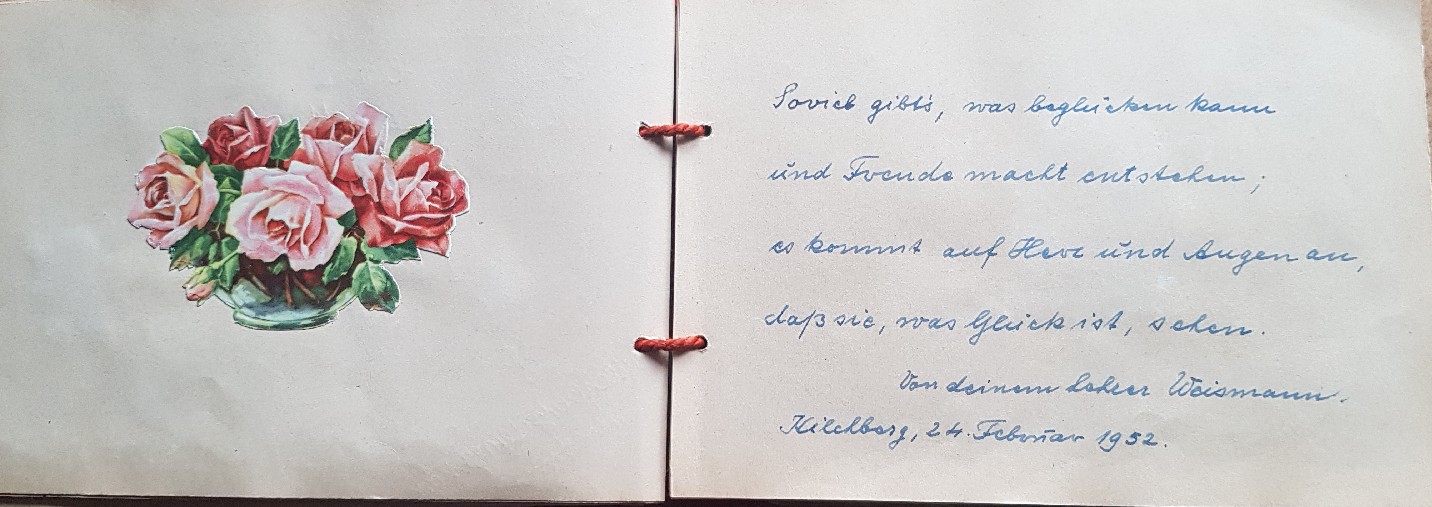 Soviel gibt's, was beglücken kann
und Freude macht entstehen;
es kommt auf Herz und Augen an,
daß sie, was Glück ist, sehen.
Von deinem Lehrer Weismann.
Kilchberg, 24. Februar 1952.